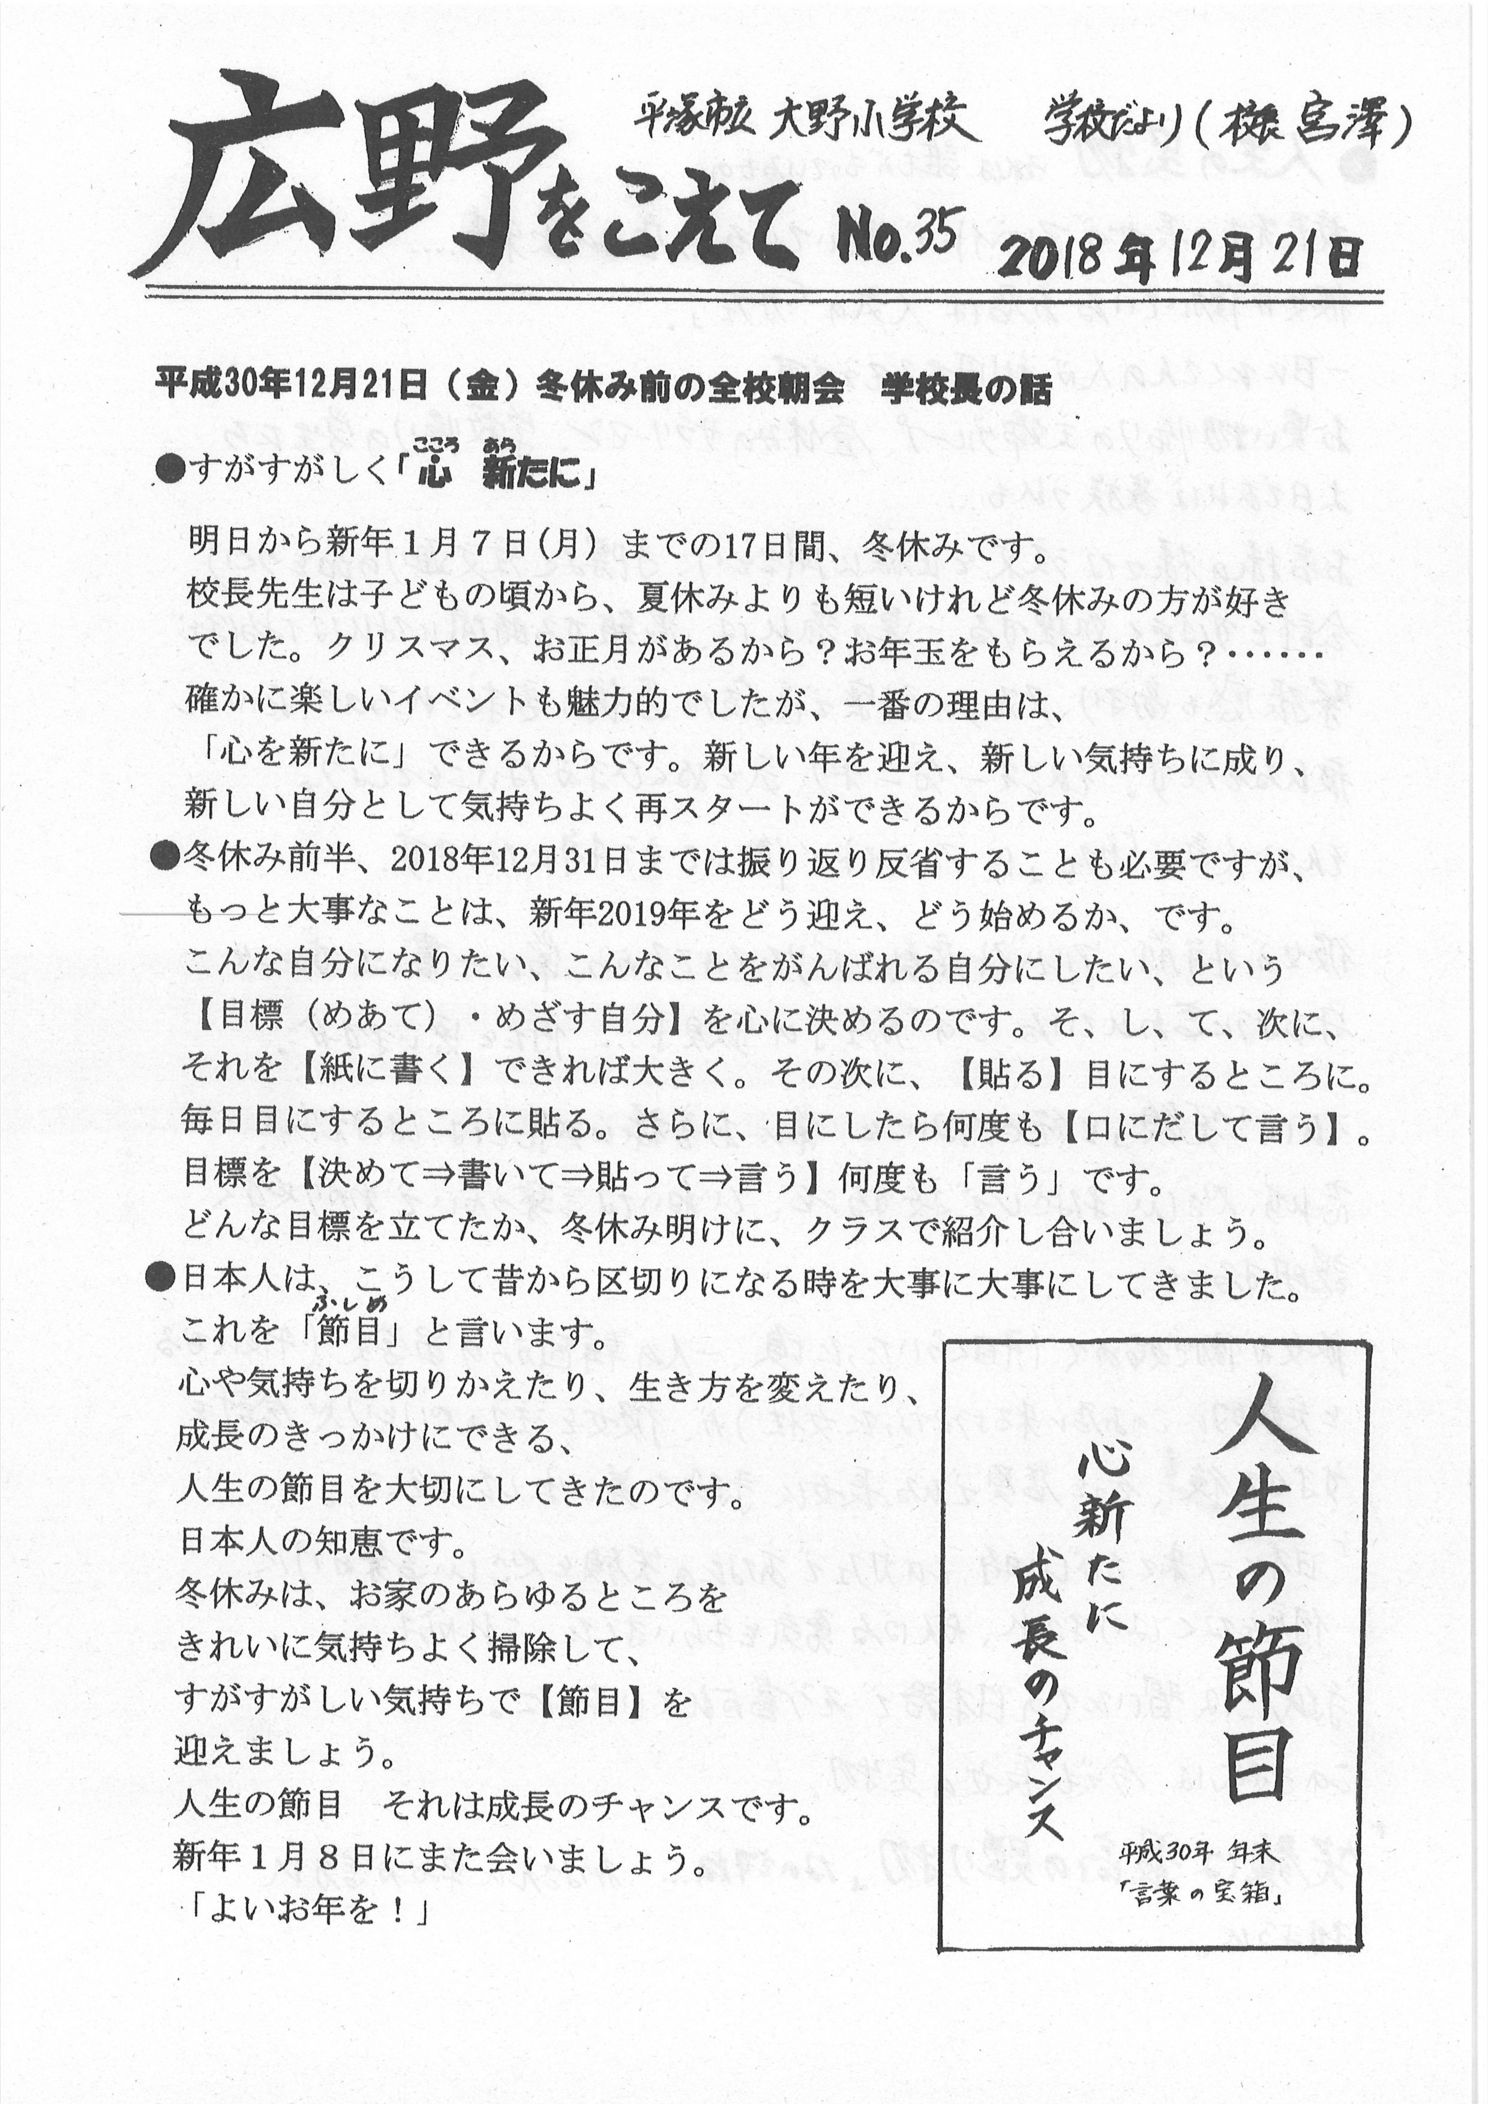 平塚市立 大野小学校 学校だより(校長 宮澤)
広野をこえて No.35 2018年12月21日
平成30年12月21日（金）冬休み前の全校朝会　学校長の話
こころ あら
●すがすがしく「心　新たに」
明日から新年１月７日(月）までの17日間、冬休みです。
校長先生は子どもの頃から、夏休みよりも短いけれど冬休みの方が好き
でした。クリスマス、お正月があるから？お年玉をもらえるから？‥‥‥
確かに楽しいイベントも魅力的でしたが、一番の理由は、
「心を新たに」できるからです。新しい年を迎え、新しい気持ちに成り、
新しい自分として気持ちよく再スタートができるからです。
●冬休み前半、2018年12月31日までは振り返り反省することも必要ですが、
もっと大事なことは、新年2019年をどう迎え、どう始めるか、です。
こんな自分になりたい、こんなことをがんばれる自分にしたい、という
【目標（めあて）・めざす自分】を心に決めるのです。そ、し、て、次に、
それを【紙に書く】できれば大きく。その次に、【貼る】目にするところに。
毎日目にするところに貼る。さらに、目にしたら何度も【口にだして言う】。
目標を【決めて⇒書いて⇒貼って⇒言う】何度も「言う」です。
どんな目標を立てたか、冬休み明けに、クラスで紹介し合いましょう。
●日本人は、こうして昔から区切りになる時を大事に大事にしてきました。
ふしめ
これを「節目」と言います。
心や気持ちを切りかえたり、生き方を変えたり、
成長のきっかけにできる、
人生の節目を大切にしてきたのです。
日本人の知恵です。
冬休みは、お家のあらゆるところを
きれいに気持ちよく掃除して、
すがすがしい気持ちで【節目】を
迎えましょう。
人生の節目　それは成長のチャンスです。
新年１月８日にまた会いましょう。
「よいお年を！」
人生の節目
心新たに
成長のチャンス
平成30年 年末
「言葉の宝箱」